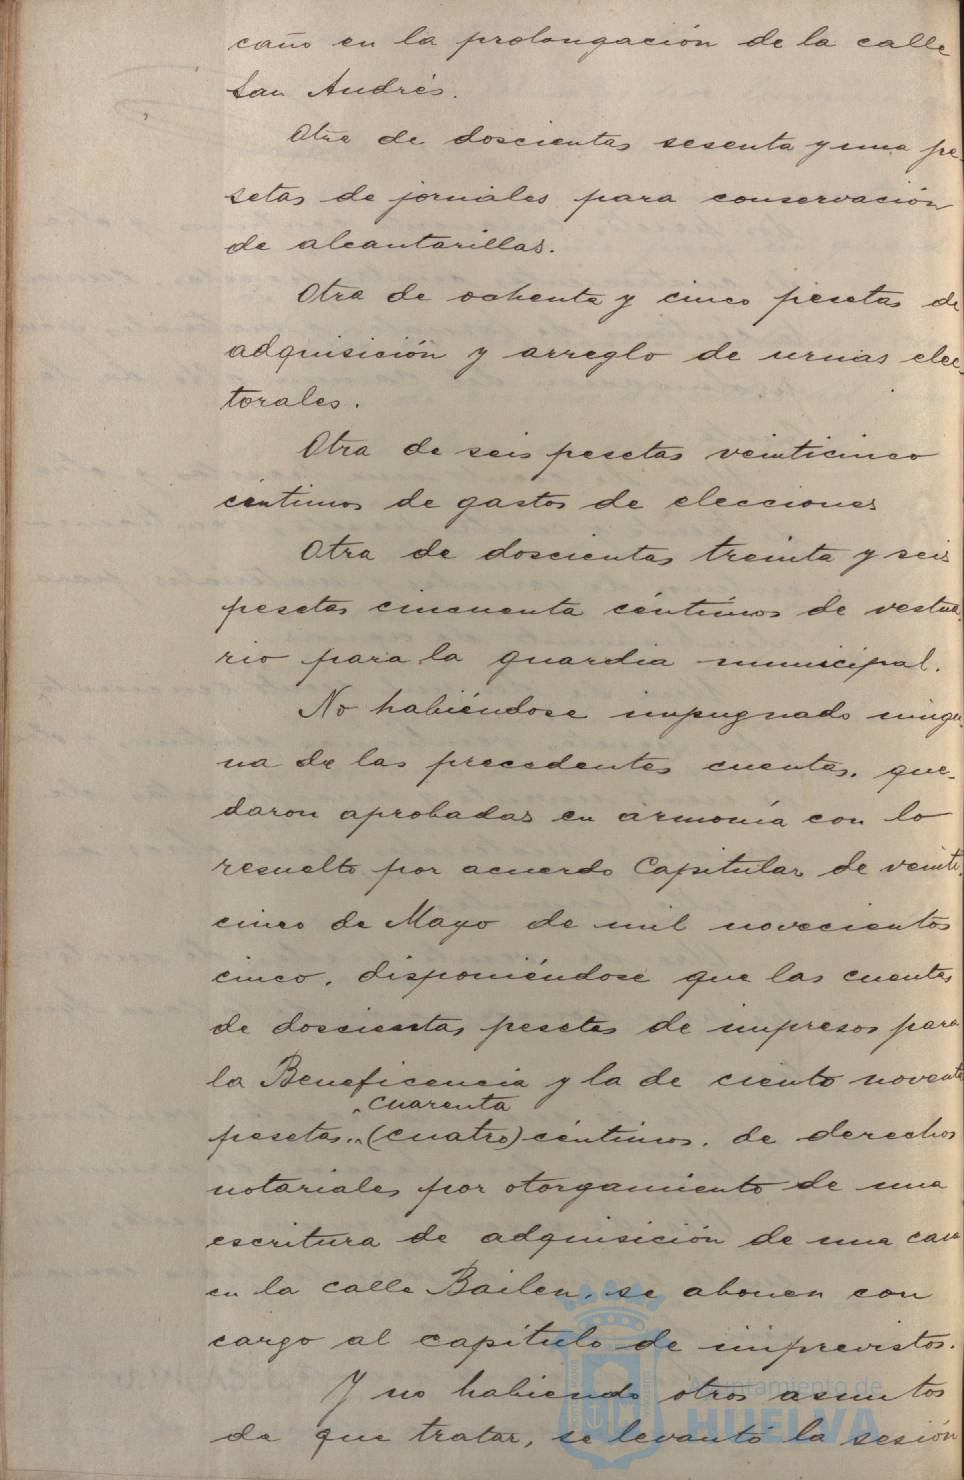 caño en la prolongación de la calle
San Andrés.
Otra de doscientas sesenta y una pe-
setas de jornales para conservación
de alcantarillas.
Otra de ochenta y cinco pesetas de
adquisición y arreglo de urnas elec-
torales.
Otra de seis pesetas veinticinco
céntimos de gastos de elecciones
Otra de doscientas treinta y seis
pesetas cincuenta céntimos de vestua-
rio para la guardia municipal.
No habiéndose impugnado ningu-
na de las precedentes cuentas, que-
daron aprobadas en armonía con lo
resuelto por acuerdo Capitular de veinti-
cinco de Mayo de mil novecientos
cinco, disponiéndose que las cuentas
de doscientas pesetas de impresos para
la Beneficencia y la de ciento noventa
"cuarenta
pesetas "(cuatro) céntimos, de derechos
notariales por otorgamiento de una
escritura de adquisición de una casa
en la calle Bailen, se abonen con
cargo al capítulo de imprevistos.
Y no habiendo otros asuntos
de que tratar, se levantó la sesión
Ayuntamiento de
HUELVA